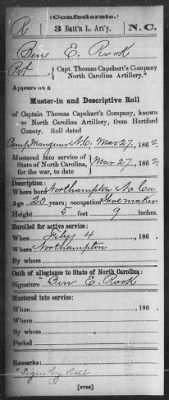 (Confederate.)
R 3 Batt'n L. Art'y. N.C.
Ben E. Rook
Pvt, Capt. Thomas Capehart's Company
North Carolina Artillery.
Appears on a
Muster-in and Descriptive Roll
of Captain Thomas Capehart's Company, known
as North Carolina Artillery, from Hertford
County. Roll dated
Camp Mangum N.C. Mar 27, 186
Mustered into service of
State of North Carolina, Mar 27, 186
for the war, to date
Description:
Where born Northampton No Ca
Age 20 years; occupation Shoemaker
Height 5 feet 9 inches.
Enrolled for active service:
When July 4, 186
Where Northampton
By whom
Oath of allegiance to State of North Carolina:
Signature Ben E. Rook
Mustered into service:
When, 186
Where
By whom
Period
Remarks: